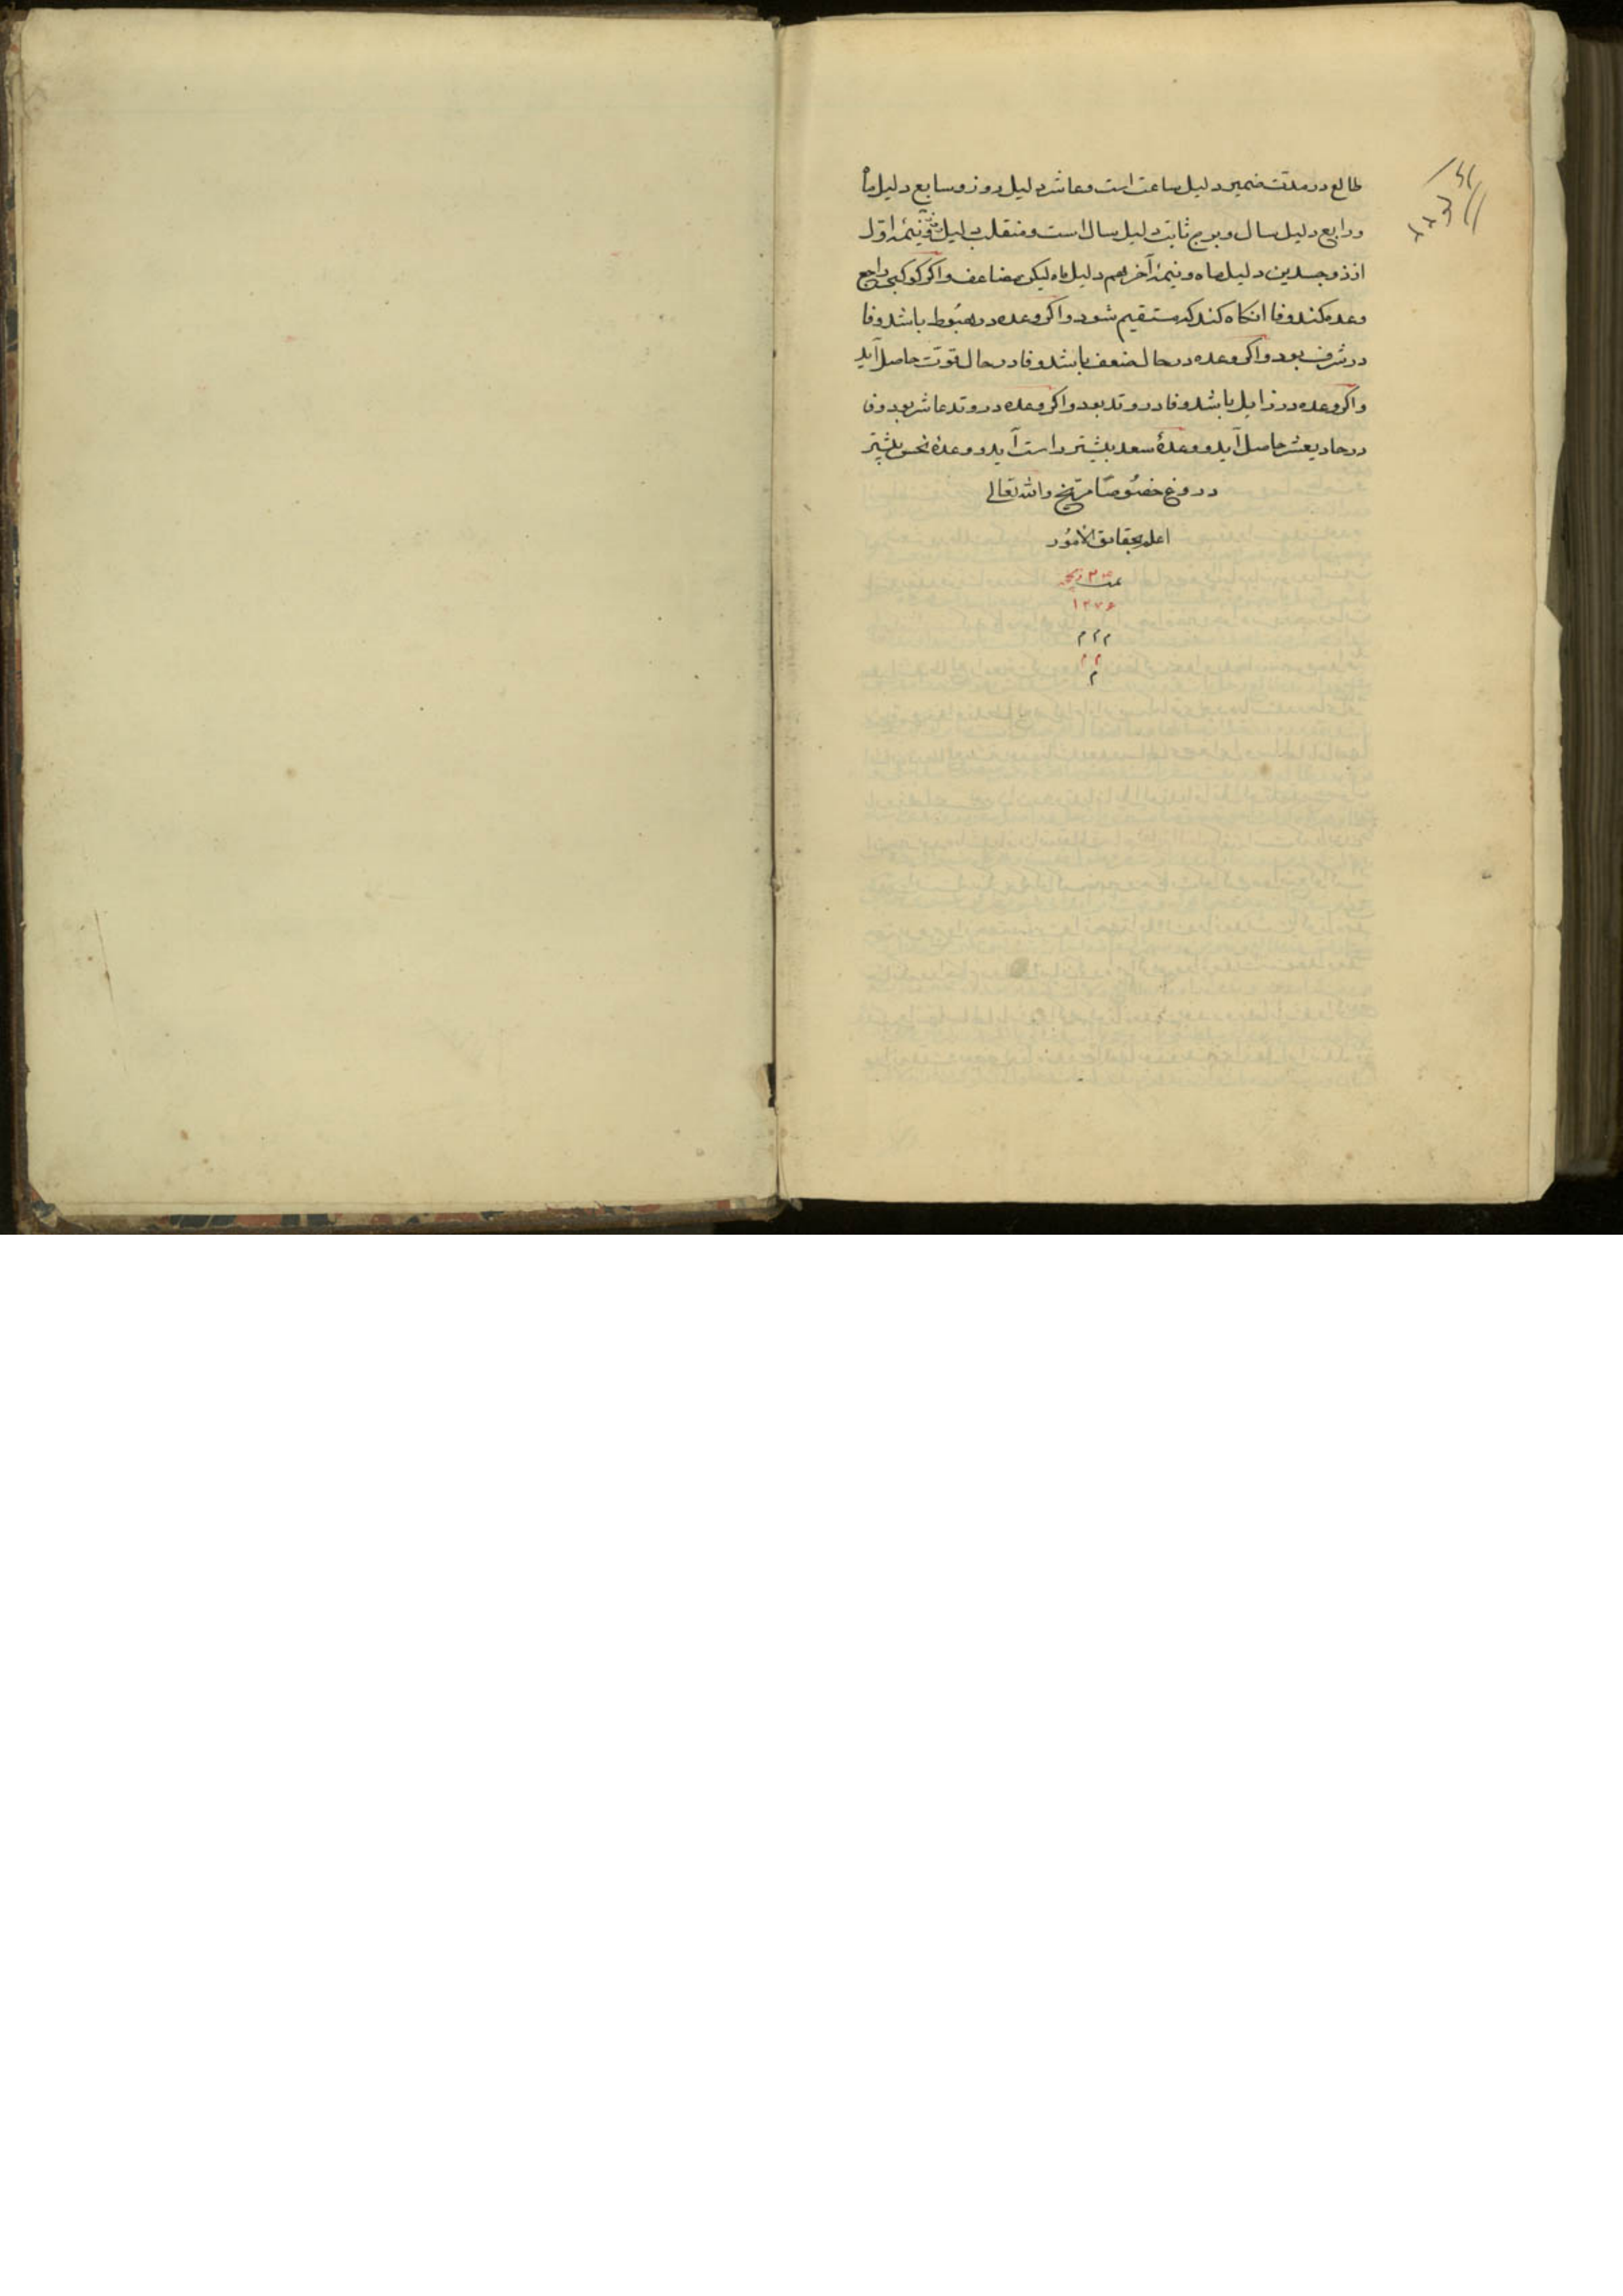 طالع در مدت ضمیر دلیل ساعت است و عاشر دلیل روز و سابع دلیل ماه
و رابع دلیل سال و برج ثابت دلیل سال است و منقلب دلیل و نیمهٔ اوّل
از ذو جسدین دلیل ماه و نیمهٔ آخر هم دلیل ماه لیکن مضاعف و اگر کوکبی راجع
وعده کند وفا آنکاه کند که مستقیم شود و اکر وعده در هبُوط باشد وفا
در شرف بود و اکر وعده در حال ضعف باشد وفا در حال قوّت حاصل آید
و اکر وعده در زایل باشد وفا در وتد بود و اکر وعده در وتد عاشر بود وفا
در حادیعشر حاصل آید و وعدهٔ سعد بیشتر راست آید و وعدهٔ نحس بیشتر
دروغ خصُوصًا مریخ والله تعالی
اعلم بحقایق الأمُور
تمت
۱۲۷۶
م م م
م م
م